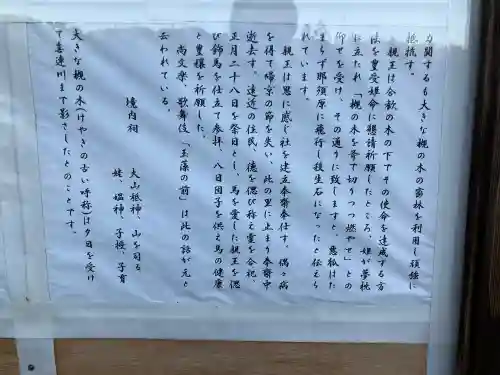 力闘するも大きな槻の木の密林を利用し頑強に
抵抗す。
親王は合歓の木の下でその使命を達成する方
法を豊受姫命に懇請祈願したところ、姫が夢枕
に立たれ「槻の木を脊で切りつつ燃やせ」との
仰せを受け、その通りに致しますと、悪狐はた
まらず那須原に飛行し殺生石になったと伝えら
れています。
親王は恩に感じ社を建立奉斎奉仕す。偶々病
を得て帰京の節を失い、此の里に止まり奉斎中
逝去す。遠近の住民、徳を偲び称え霊を合祀、
正月二十八日を祭日とし、馬を愛した親王を偲
び飾馬を仕立て参拝、八日団子を供え馬の健康
と豊穣を祈願した。
尚文楽、歌舞伎「玉藻の前」は此の話が元と
云われている。
境内祠
大山祇神、山を司る
姥、媼神、子授、子育
大きな槻の木(けやきの古い呼称)は夕日を受け
て喜連川まで影さしたとのことです。